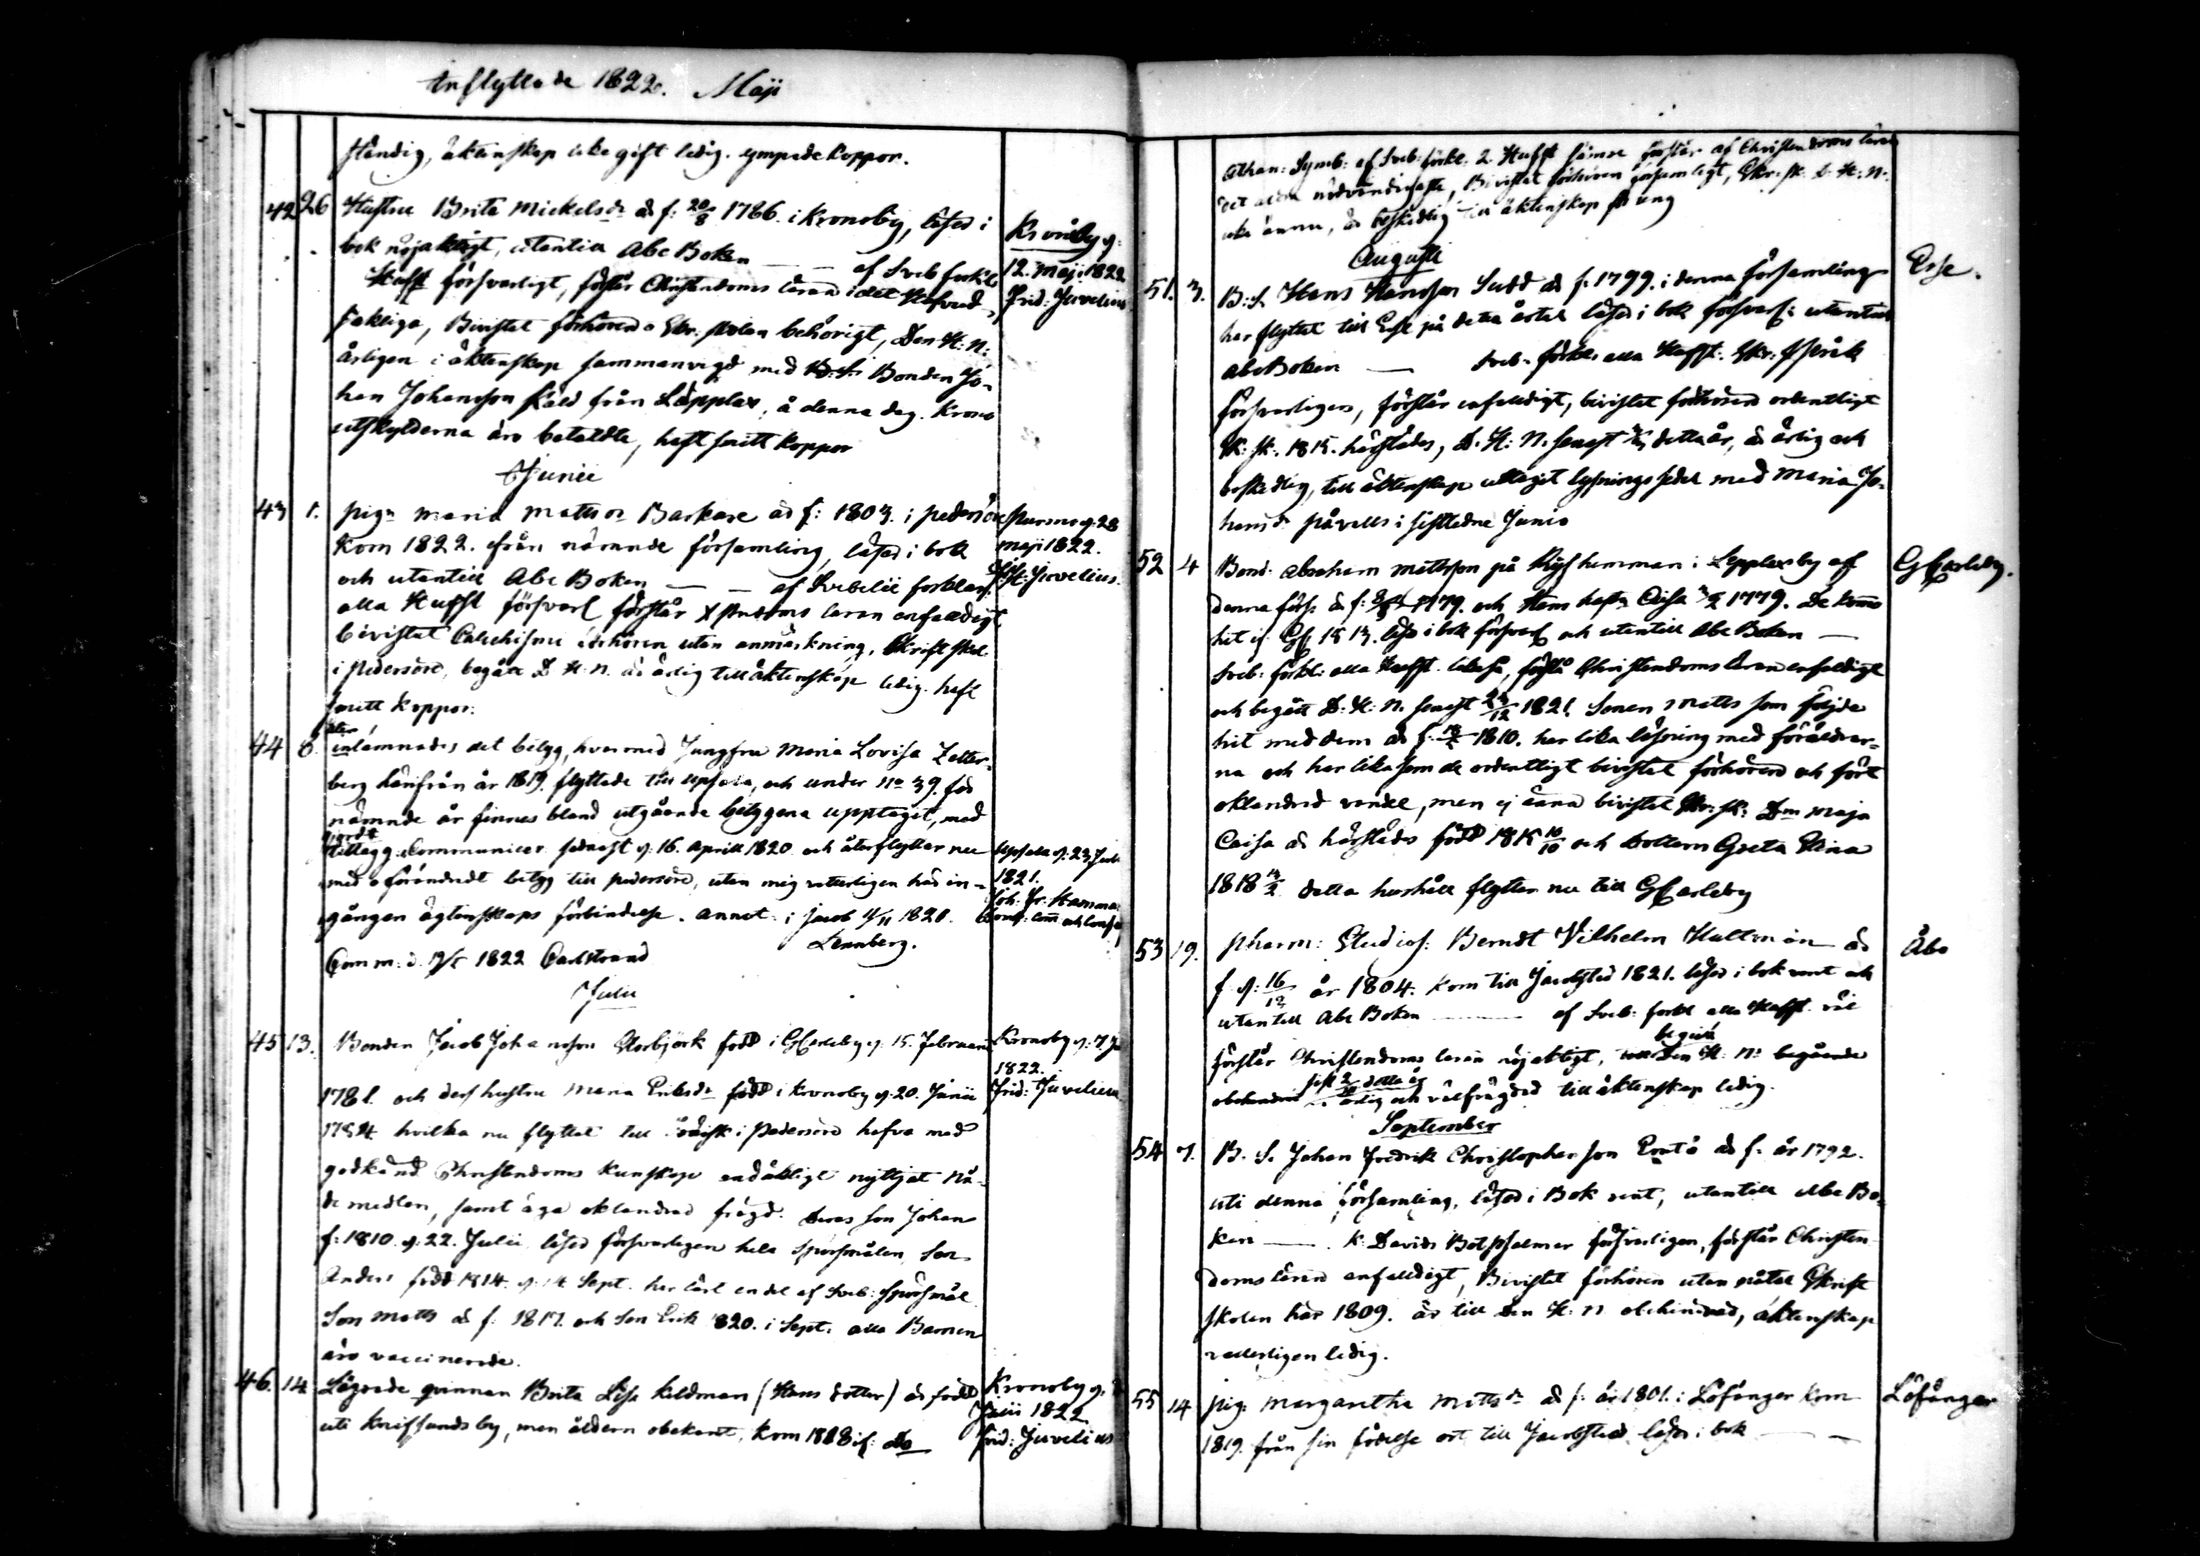 Inflyttade 1822. Maji
ständig, äktenskap icke gift ledig. ympade koppor.
42 26 Hustru Brita Mickelsdr är f: 20/8 1786. i Kronoby, läser i
bok nöjaktigt, utantill Abc Boken — af Sveb förkl:
Hufst försvarligt, förstår Christendoms läran i det Hufvud-
sakliga, Bivistat förhören o Skr. skolan behörigt, Den H: N:
årligen i äktenskap sammanvigd med B: S: Bonden Jo-
han Johansson från Lepplax, å denna dag. Krono
utskylderna äro betaldte, haft smitt koppor
Kronoby d:
12. Maji 1822
Frid: Juvelius
Junii
43 1. pig: Maria Mattsdr Backare är f: 1803. i pedersöre
kom 1822. från nämnde församling, läser i bok
och utantill Abc Boken — af Svebelii förklar:
alla Hufst försvarl förstår Xstendoms läran enfaldigt
bivistat Catechismi förhören utan anmärkning, Skrift skol
i pedersöre, begått D. H. N. är ärlig till äktenskap ledig. haft
smitt koppor.
Purmo d. 28
maji 1822.
Juvelius.
44 8. inlämnades det betyg, hvarmed Jungfru Maria Lovisa Zetter-
berg härifrån år 1819. flyttade till Upsala, och under No 39. för
nämnde år finnes bland utgående betygena upptaget, med
gjordt
tillägg Communicer. sednast d. 16. Aprill 1820 och återflyttar nu
med oförändradt betyg till pedersöre, utan mig veterligen här in-
gången ägtenskaps förbindelse. annot: i Jacob 4/11 1821.
Lennberg.
Comm: d. 1822 Carlstrand
Upsala d: 23 Juli
1821.
Joh: Fr. Hamma
Julii
45 13. Bonden Jacob Johansson Storbjörk född i GCarleby d. 15. Februari
1781. och dess hustru Maria Eriksdr född i Kronoby d. 20. Junii
1784. hvilka nu flyttat till i Pedersöre hafva med
godkänd Christendoms kunskap andäktligt nyttjat Nå-
de medlen, samt äga oklandrad frägd. Deras son Johan
f: 1810. d. 22. Julii läser försvarligen hela Spörsmålen, Son
Anders född 1814. d. 14 Sept. har lärt en del af Sveb: Spörsmål
Son Matts är f. 1817. och Son Erik 1820. i Sept: alla Barnen
äro vaccinerade.
Kronoby d: 7
1822.
Frid: Juvelius
46. 14. Lägrade qvinnan Brita Lisa Keldman (Hans dotter) är född
uti Knifsundsby, men åldern obekant, kom 1818 if: do
Kronoby d.
Julii 1822
Frid: Juvelius
Athan: Symb: af Sveb: förkl. 2. Hufst sämre förstår af Christendoms läran
det aldra nödvändigaste, Bivistat förhören försumligt, Skr. sk. D. H: N:
icke ännu, är beskedlig till äktenskap för ung
Augusti
51. 3. B: S. Hans Hansson Sudd är f. 1799. i denna församling
har flyttat till Esse på detta året läser i bok försvarl: utantill
Abc Boken — Sveb. förkl: alla Hufst:
försvarligen, förstår enfaldigt, bivistat förhören ordentligt
Sk: sk. 1815. härstädes, D. H: N. senast detta år, är ärlig och
beskedlig, till äktenskap uttagit lysningssedel med Maria Jo-
hansdr påvells i sistledne Junio
Esse.
52 4 Bond: Abraham Mattsson på hemman i Lepplaxby af
denna förs: är f: 1779. och Hans hustru Caisa 1779. De kommo
hit if: GC 1813. läsa i bok försvarl och utantill Abc Boken —
Sveb: förkl: alla Hufst. likaså, förstå Christendoms läran enfaldigt
och begått D: H: N. senast 23/12 1821. Sonen Matts som följde
hit med dem är f. 1810. har lika läsning med föräldrar-
na och har lika som de ordentligt bivistat förhören och fört
oklandrad vandel, men ej ännu bivistat Skr: sk: Dm Maja
Caisa är härstädes född 1815 10/10 och dottern Greta Stina
1818 detta hushåll flyttar nu till GCarleby
GCarleby.
53 19. Pharm: Studios: Berndt Vilhelm Hultman är
f. d: 16/12 år 1804. kom till Jacobstad 1821. läser i bok rent och
utantill Abc Boken — af Sveb: förkl alla Hufst. väl
förstår Christendoms läran nöjaktigt, Den H: N: begående
obehindrad ärlig och välfrägdad till äktenskap ledig.
Åbo
September
54 7. B. S. Johan Fredrik Christophersson är f. år 1792.
uti denna församling, läser i Bok rent, utantill Abc Bo-
ken — K: Davids Botpsalmer försvarligen, förstår Christen-
doms läran enfaldigt, Bivistat förhören utan Skrift
skolan här 1809. är till Den H: N obehindrad, äktenskap
veterligen ledig.
55 14 pig: Margaretha Mattsdr är f: år 1801. i Löfånger kom
1819. från sin födelse ort till Jacobstad läser i bok —
Löfånger